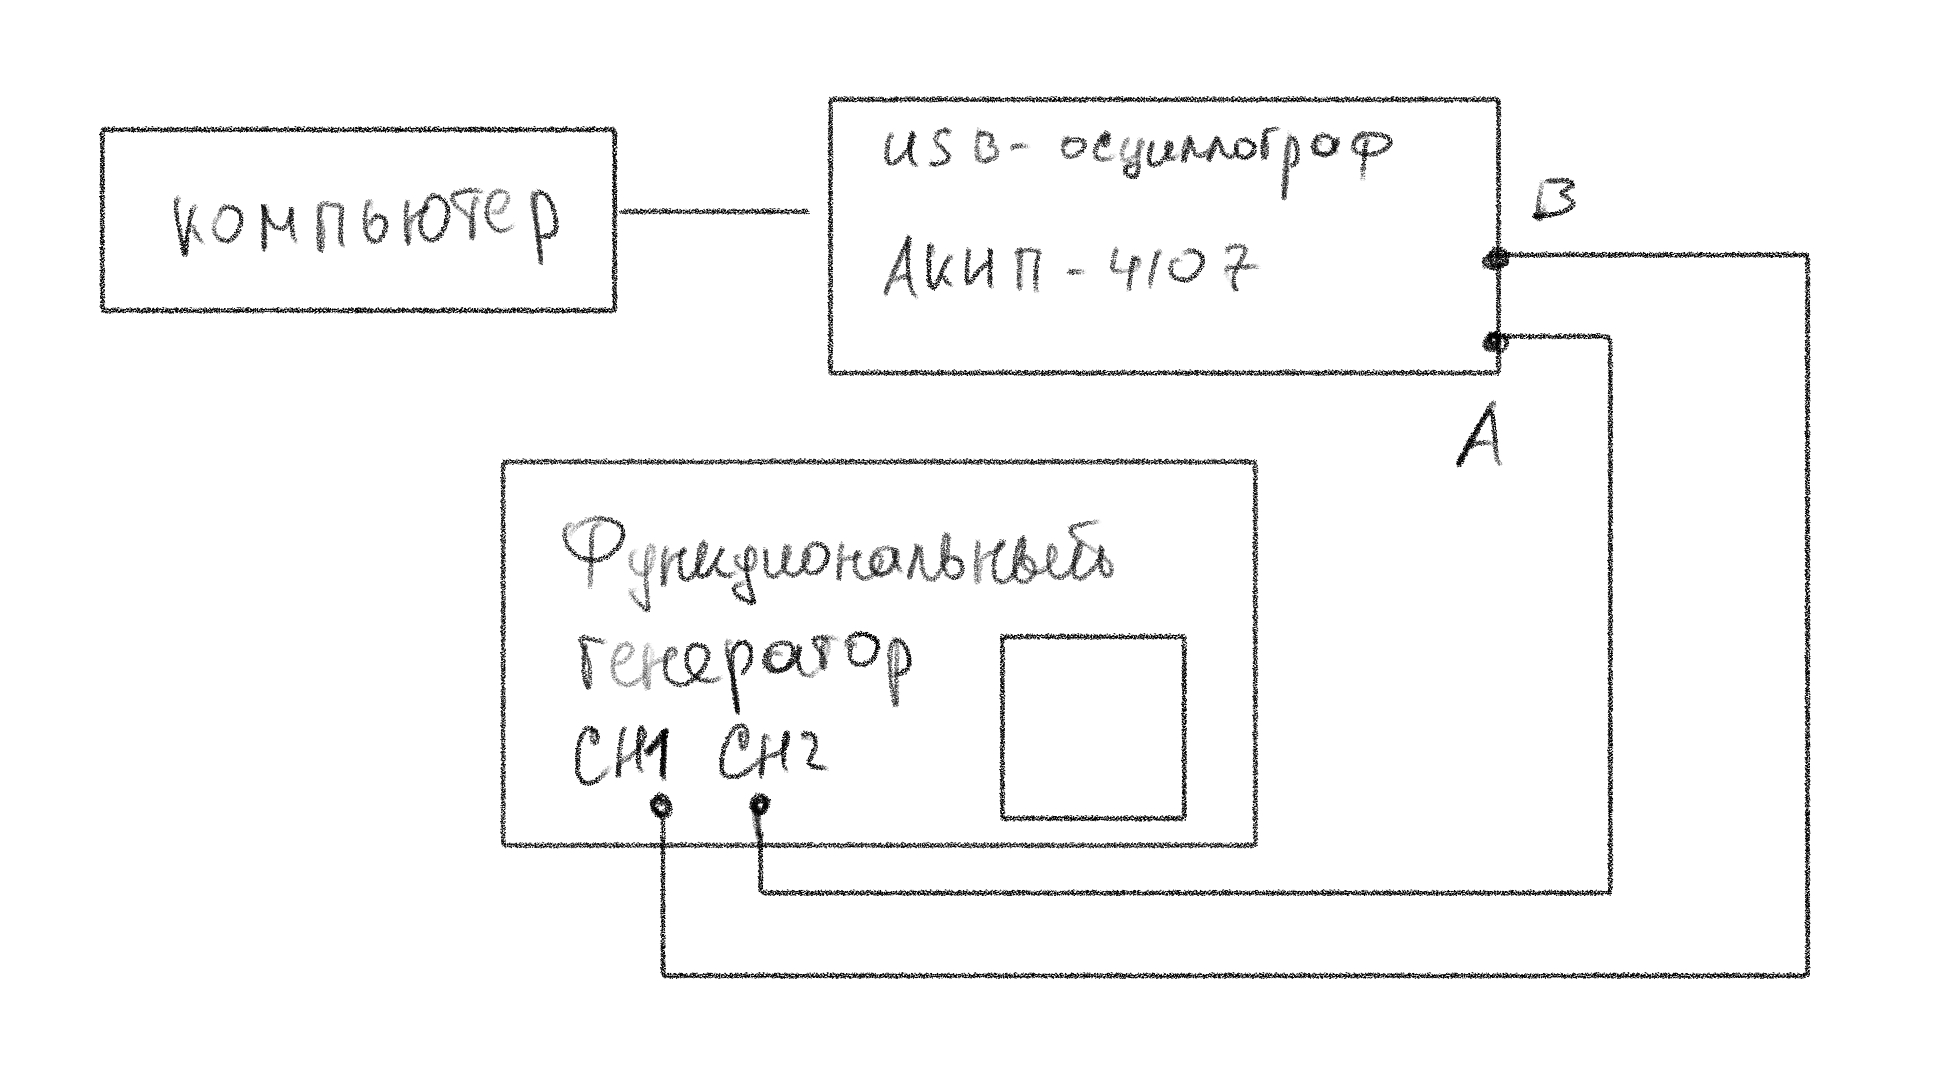 компьютер
USB- осциллограф
АКИП - 4107
B
A
Функциональный
генератор
CH1 CH2